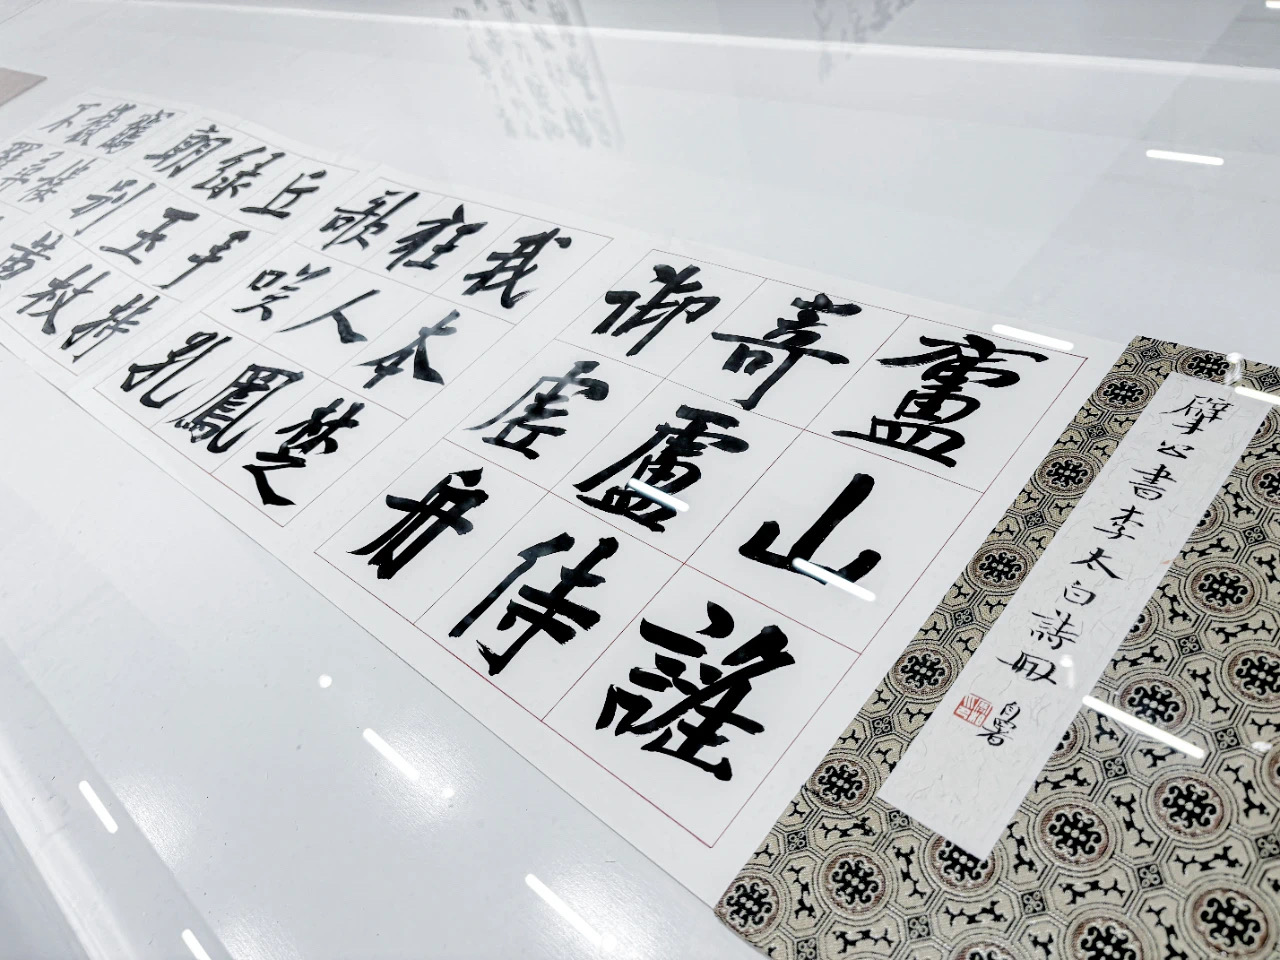 擘公書李太白詩冊
自署
廬山謠
寄盧侍
御虛舟
我本楚
狂人鳳
歌咲孔
丘手持
綠玉杖
朝別黃
鶴樓
嶽尋
不